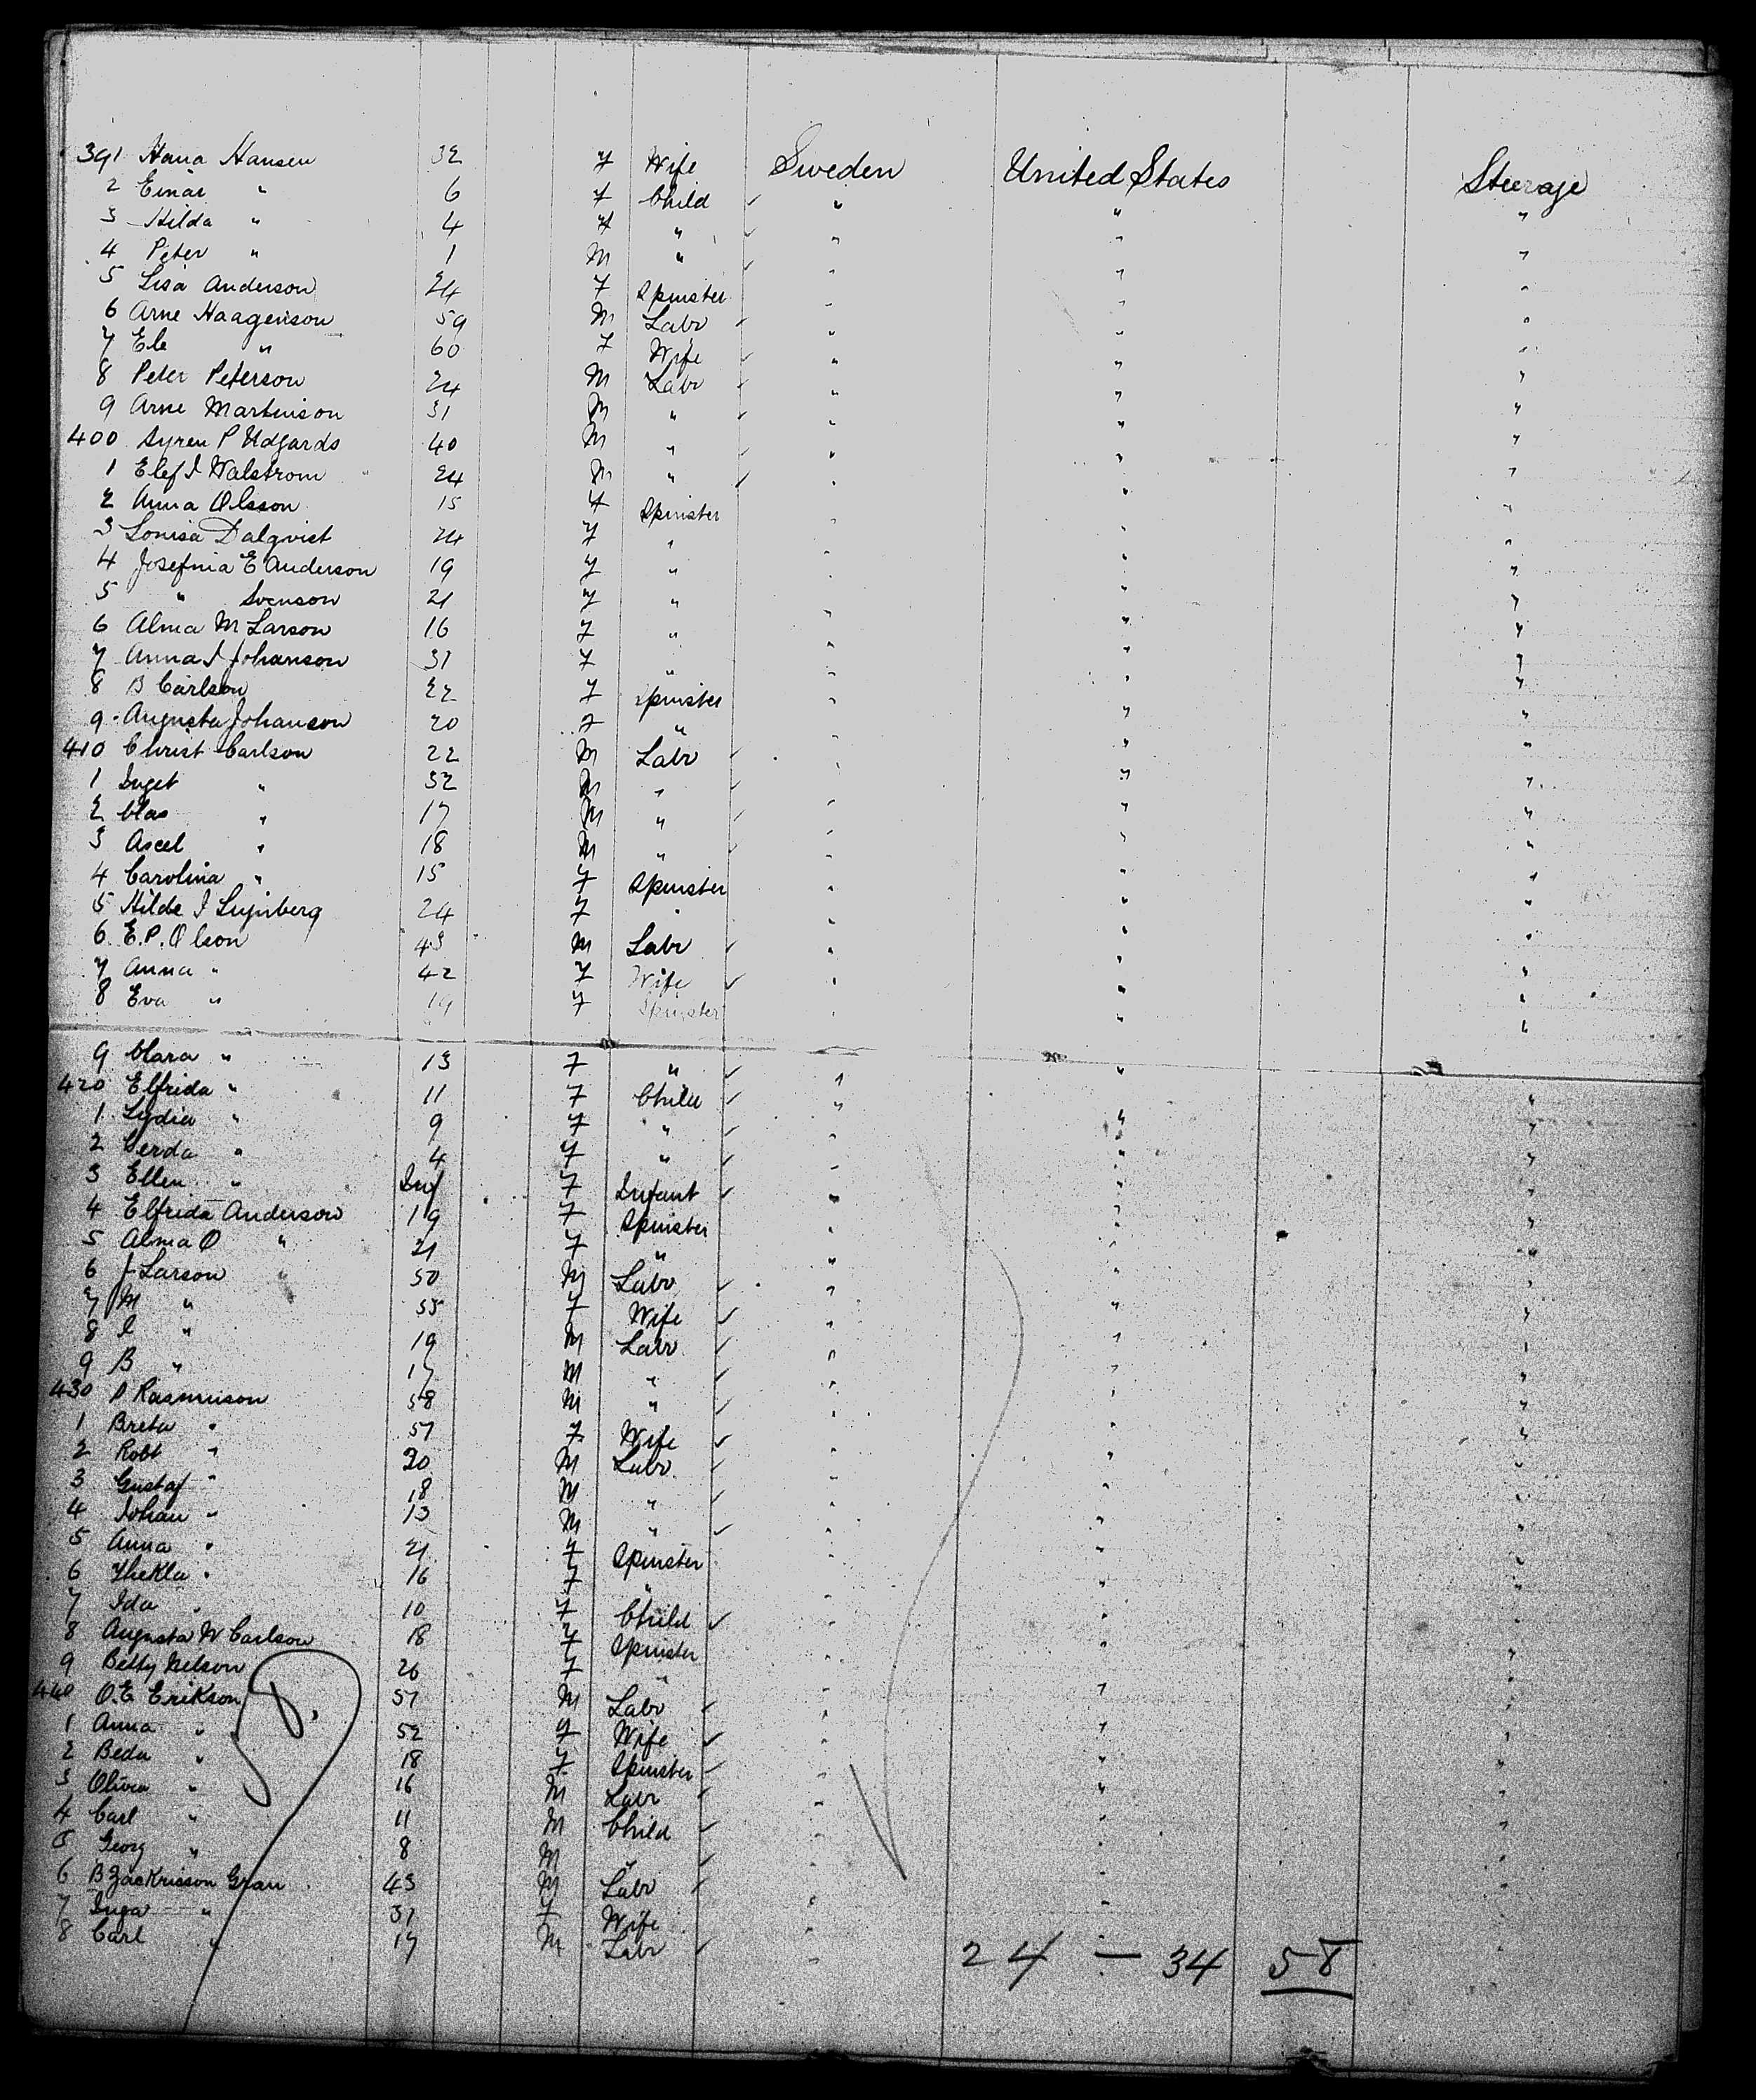 391 Hana Hansen 32 F Wife Sweden United States Steerage
2 Einar " 6 F Child " " "
3 Hilda " 4 F " " " "
4 Peter " 1 M " " " "
5 Lisa Anderson 24 F Spinster " " "
6 Arne Haagenson 59 M Labr " " "
7 Ele " 60 F Wife " " "
8 Peter Peterson 24 M Labr " " "
9 Arne Martinson 31 M " " " "
400 Syren P Udgards 40 M " " " "
1 Elef I Walstrom 24 M " " " "
2 Anna Olsson 15 F Spinster " " "
3 Lonisa Dalqvist 24 F " " " "
4 Josefinia E Anderson 19 F " " " "
5 " Svenson 21 F " " " "
6 Alma M Larson 16 F " " " "
7 Anna I Johanson 31 F " " " "
8 B Carlson 22 F Spinster " " "
9 Augusta Johanson 20 F " " " "
410 Christ Carlson 22 M Labr " " "
1 Inget " 32 M " " " "
2 Clas " 17 M " " " "
3 Axel " 18 M " " " "
4 Carolina " 15 F Spinster " " "
5 Hilde I 24 F " " " "
6 E.P. Olson 43 M Labr " " "
7 Anna " 42 F Wife " " "
8 Eva " 19 F Spinster " " "
9 Clara " 13 F " " " "
420 Elfrida " 11 F Child " " "
1 Lydia " 9 F " " " "
2 Gerda " 4 F " " " "
3 Ellen " Inf F Infant " " "
4 Elfrida Anderson 19 F Spinster " " "
5 Alma O " 21 F " " " "
6 J Larson 50 M Labr " " "
7 M " 55 F Wife " " "
8 I " 19 M Labr " " "
9 B " 17 M " " " "
430 P Rasmuison 58 M " " " "
1 Breta " 57 F Wife " " "
2 Robt " 20 M Labr " " "
3 Gustaf " 18 M " " " "
4 Johan " 13 M " " " "
5 Anna " 21 F Spinster " " "
6 Thekla " 16 F " " " "
7 Ida " 10 F Child " " "
8 Augusta W Carlson 18 F Spinster " " "
9 Betty Nelson 26 F " " " "
440 O.E Erikson 57 M Labr " " "
1 Anna " 52 F Wife " " "
2 Beda " 18 F Spinster " " "
3 Olivia " 16 M Labr " " "
4 Carl " 11 M Child " " "
5 Georg " 8 M " " " "
6 B Zackrisson Gran 43 M Labr " " "
7 Inga " 37 F Wife " " "
8 Carl " 17 M Labr " " "
24 — 34 58